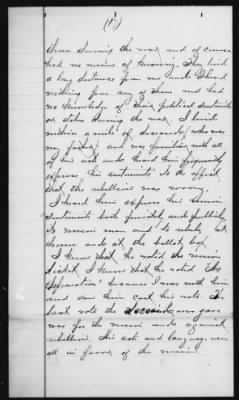 (15)
them during the war, and of course
had no means of knowing. They lived
a long distance from me, and I heard
nothing from any of them and had
no knowledge of their political sentiments
or status during the war. I lived
within a mile of deceased, who was
my father, and was familiar with all
of his acts and heard him frequently
express his sentiments to the effect
that the rebellion was wrong.
I heard him express his Union
sentiments both privately and publicly,
to Union men and to rebels, at
home and at the ballot box.
I know that he voted the Union
ticket. I know that he voted "No
Separation" because I was with him
and saw him cast his vote. The
last vote the deceased ever gave
was for the Union and against
rebellion. His acts and language were
all in favor of the Union